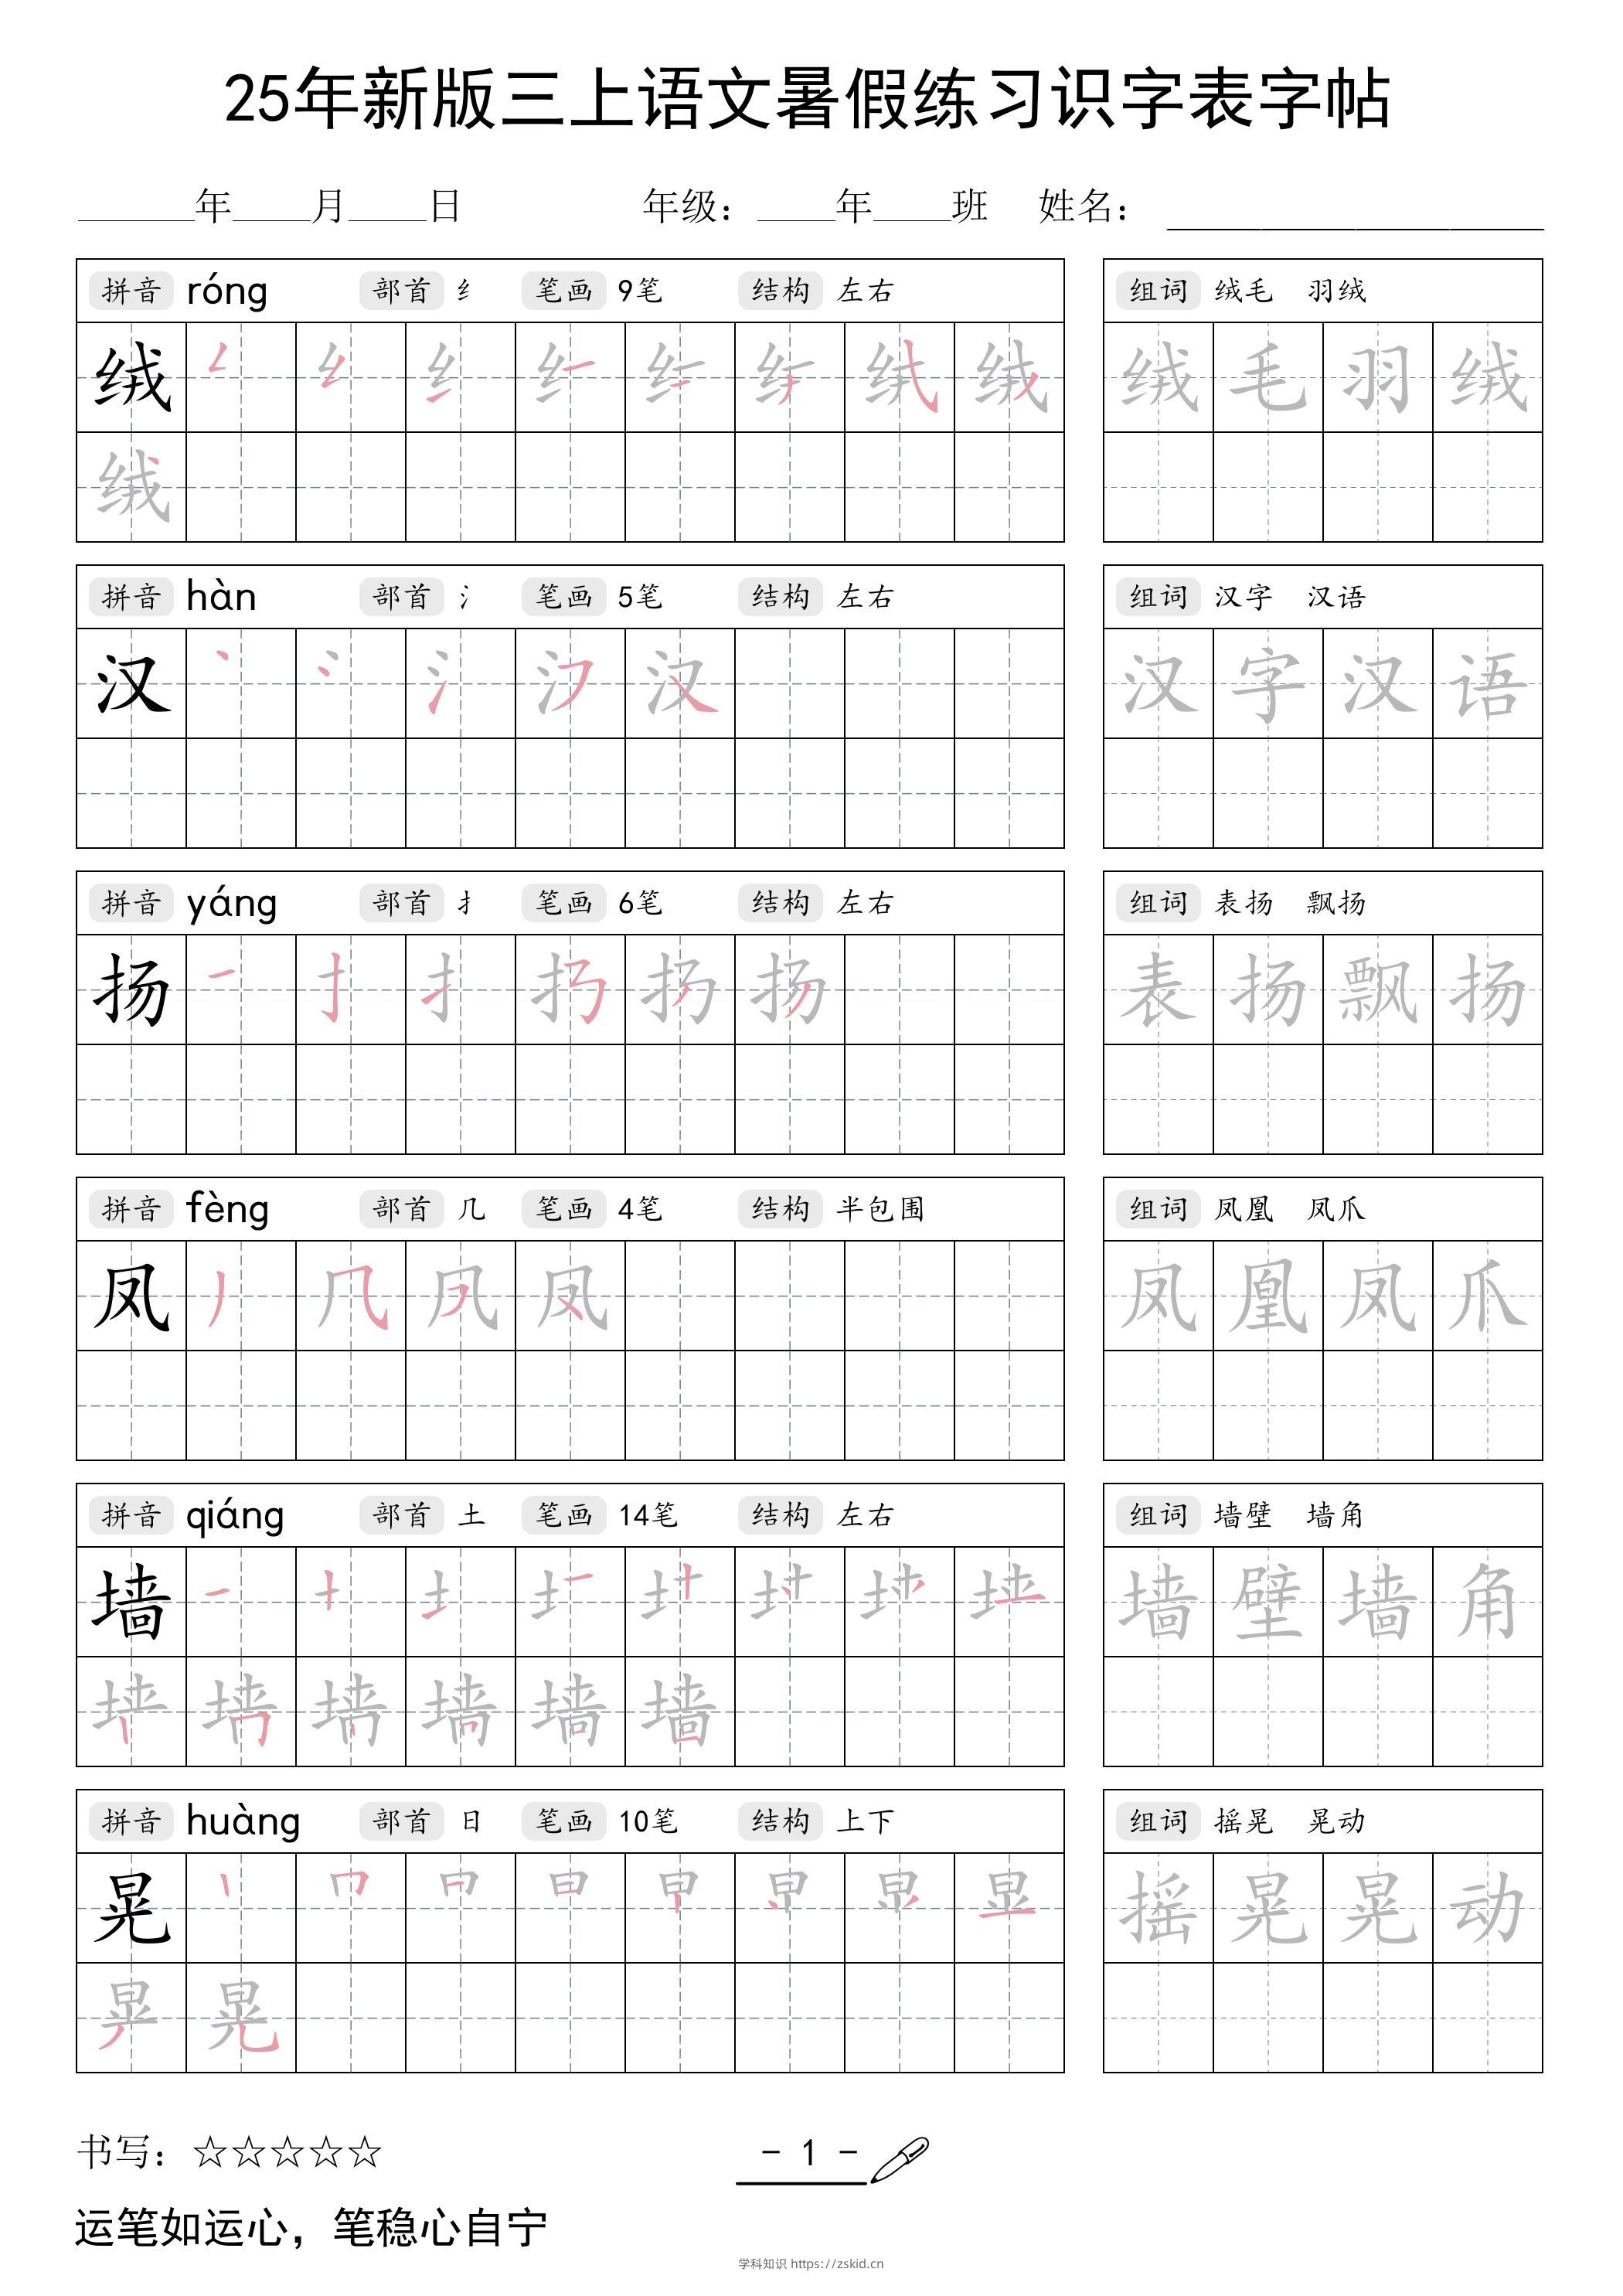 25年新版三上语文暑假练习识字表字帖
______年____月____日 年级：____年____班 姓名：____________________
拼音 róng 部首 纟 笔画 9笔 结构 左右
绒
绒
组词 绒毛 羽绒
绒毛羽绒
拼音 hàn 部首 氵 笔画 5笔 结构 左右
汉
组词 汉字 汉语
汉字汉语
拼音 yáng 部首 扌 笔画 6笔 结构 左右
扬
组词 表扬 飘扬
表扬飘扬
拼音 fèng 部首 几 笔画 4笔 结构 半包围
凤
组词 凤凰 凤爪
凤凰凤爪
拼音 qiáng 部首 土 笔画 14笔 结构 左右
墙
组词 墙壁 墙角
墙壁墙角
拼音 huàng 部首 日 笔画 10笔 结构 上下
晃
组词 摇晃 晃动
摇晃晃动
书写：☆☆☆☆☆
- 1 -
运笔如运心，笔稳心自宁
学科知识 https://zskid.cn